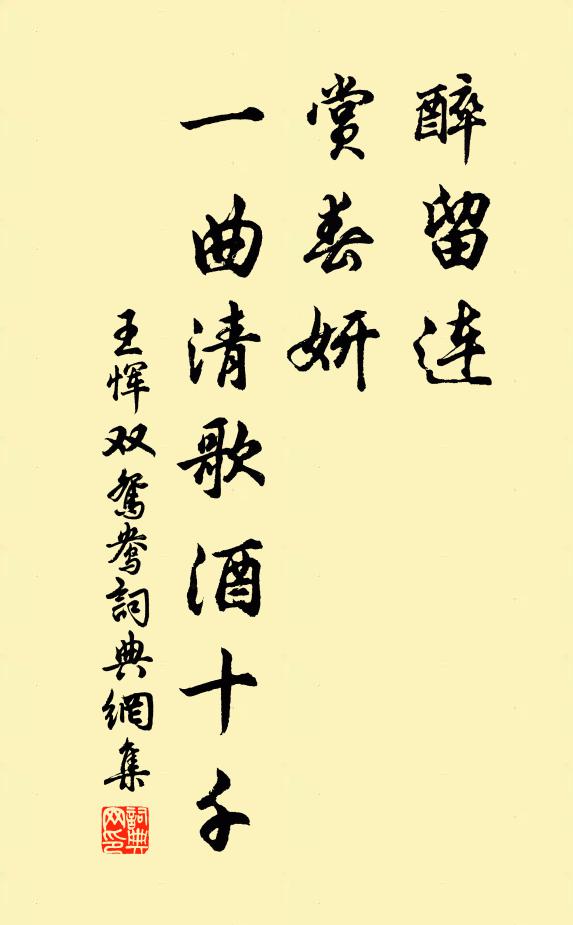 醉留连
赏春妍
一曲清歌酒十千
王恽双鸳鸯詞典網集
詞典网印